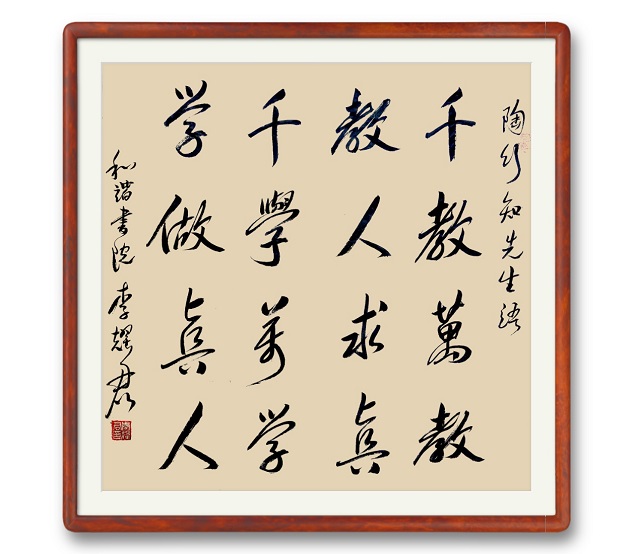 陶行知先生语
千教萬教
教人求真
千學万学
学做真人
和谐書院 李耀君